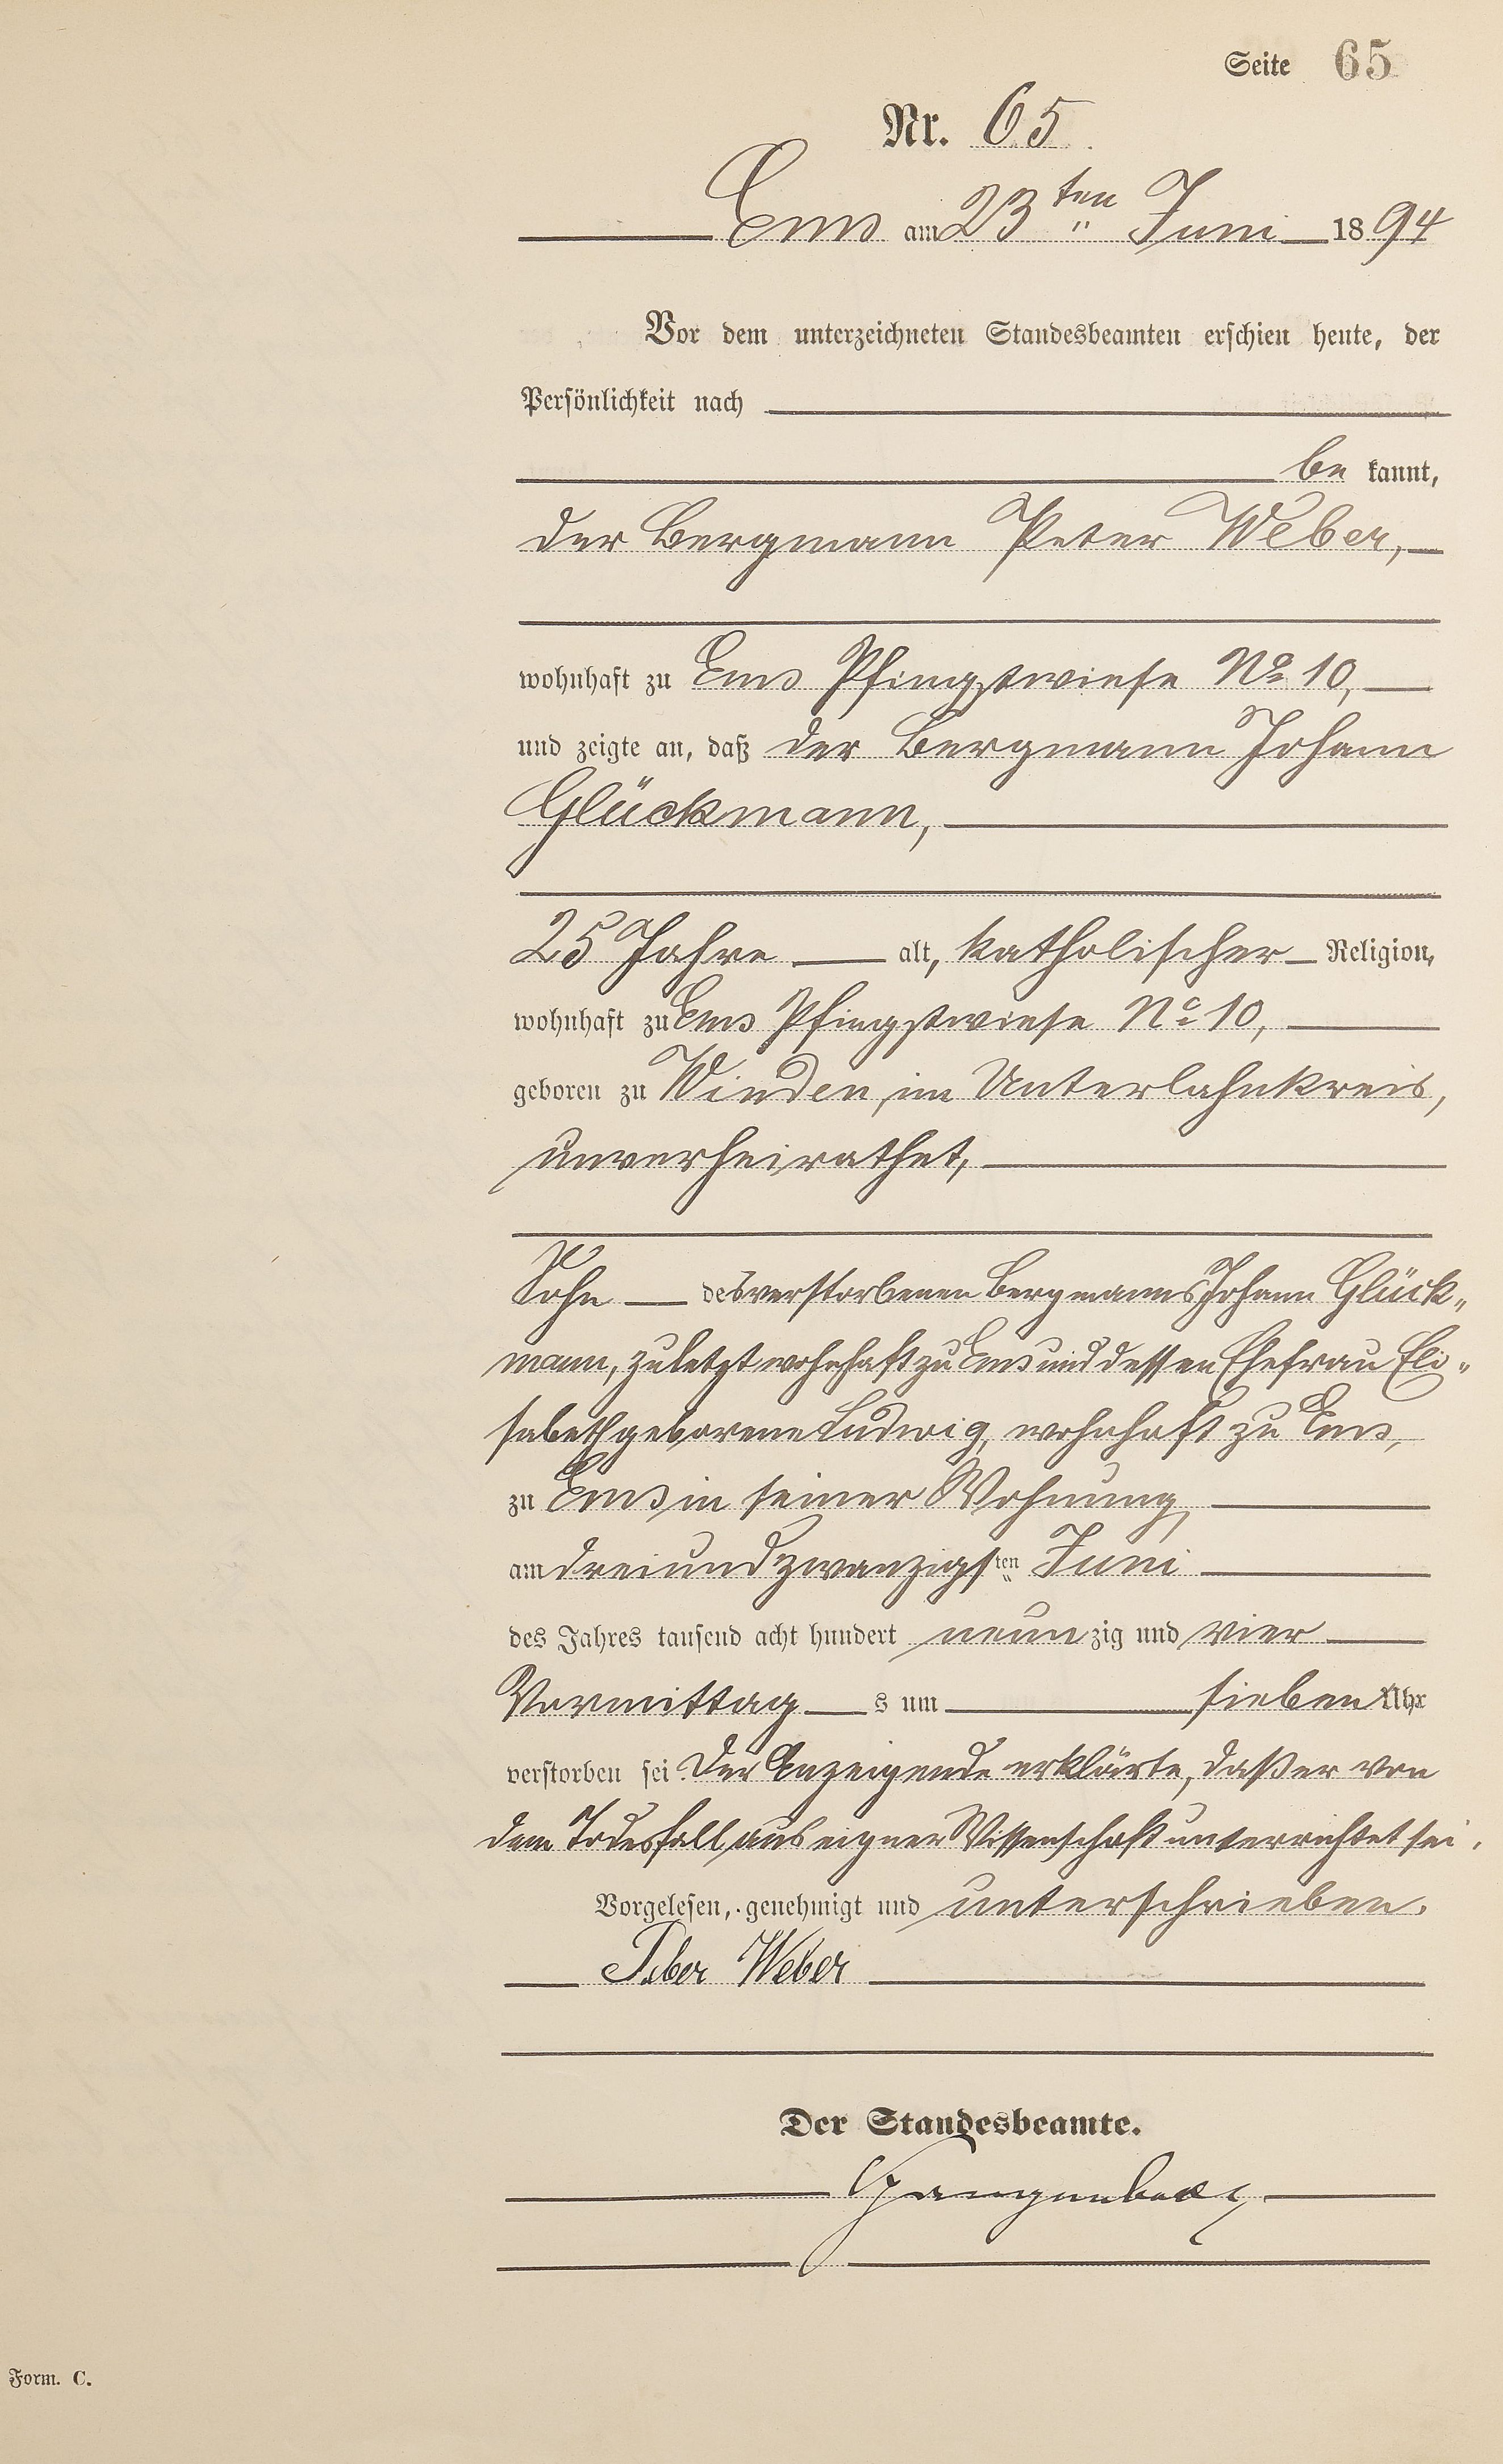 Seite 65
Nr. 65
Ems am 23ten Juni 1894
Vor dem unterzeichneten Standesbeamten erschien heute, der
Persönlichkeit nach
be kannt,
der Bergmann Peter Weber,
wohnhaft zu Ems Pfingstwiese No 10,
und zeigte an, daß der Bergmann Johann
Glückmann,
25 Jahre alt, katholischer Religion,
wohnhaft zu Ems Pfingstwiese No 10,
geboren zu Winden, im Unterlahnkreis,
unverheirathet,
Sohn des verstorbenen Bergmanns Johann Glück-
mann, zuletzt wohnhaft zu Ems und dessen Ehefrau Eli-
sabeth geborene Ludwig, wohnhaft zu Ems,
zu Ems in seiner Wohnung
am dreiundzwanzigsten Juni
des Jahres tausend acht hundert neun zig und vier
Vormittag s um sieben Uhr
verstorben sei. Der Anzeigende erklärte, daß er von
dem Todesfall aus eigner Wissenschaft unterrichtet sei.
Vorgelesen, genehmigt und unterschrieben.
Peter Weber
Der Standesbeamte.
Form. C.